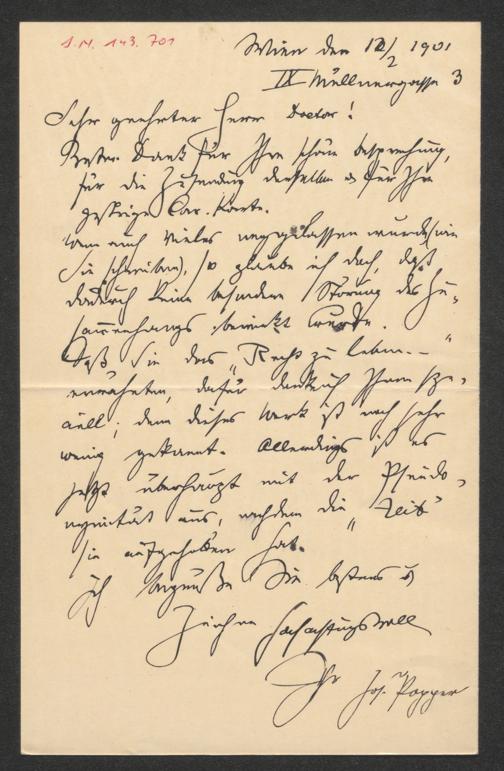 I.N. 143.701
Wien den 12/2 1901
IX Müllnergasse 3
Sehr geehrter Herr Doctor!
Besten Dank für Ihre schöne Besprechung,
für die Zusendung derselben u für Ihre
gestrige Cor. Karte.
Wenn auch Vieles weggelassen wurde (wie
Sie schreiben), so glaube ich doch, daß
dadurch keine besondere Störung des Zu-
sammenhangs bewirkt wurde.
Daß Sie das „Recht zu leben.–"
erwähnten, dafür danke ich Ihnen spe-
ciell; denn dieses Werk ist noch sehr
wenig gekannt. Allerdings ist es
jetzt überhaupt mit der Pseudo-
nymität aus, nachdem die „Zeit"
sie aufgehoben hat.
Ich begrüße Sie bestens u
zeichne hochachtungsvoll
Ihr Jos. Popper